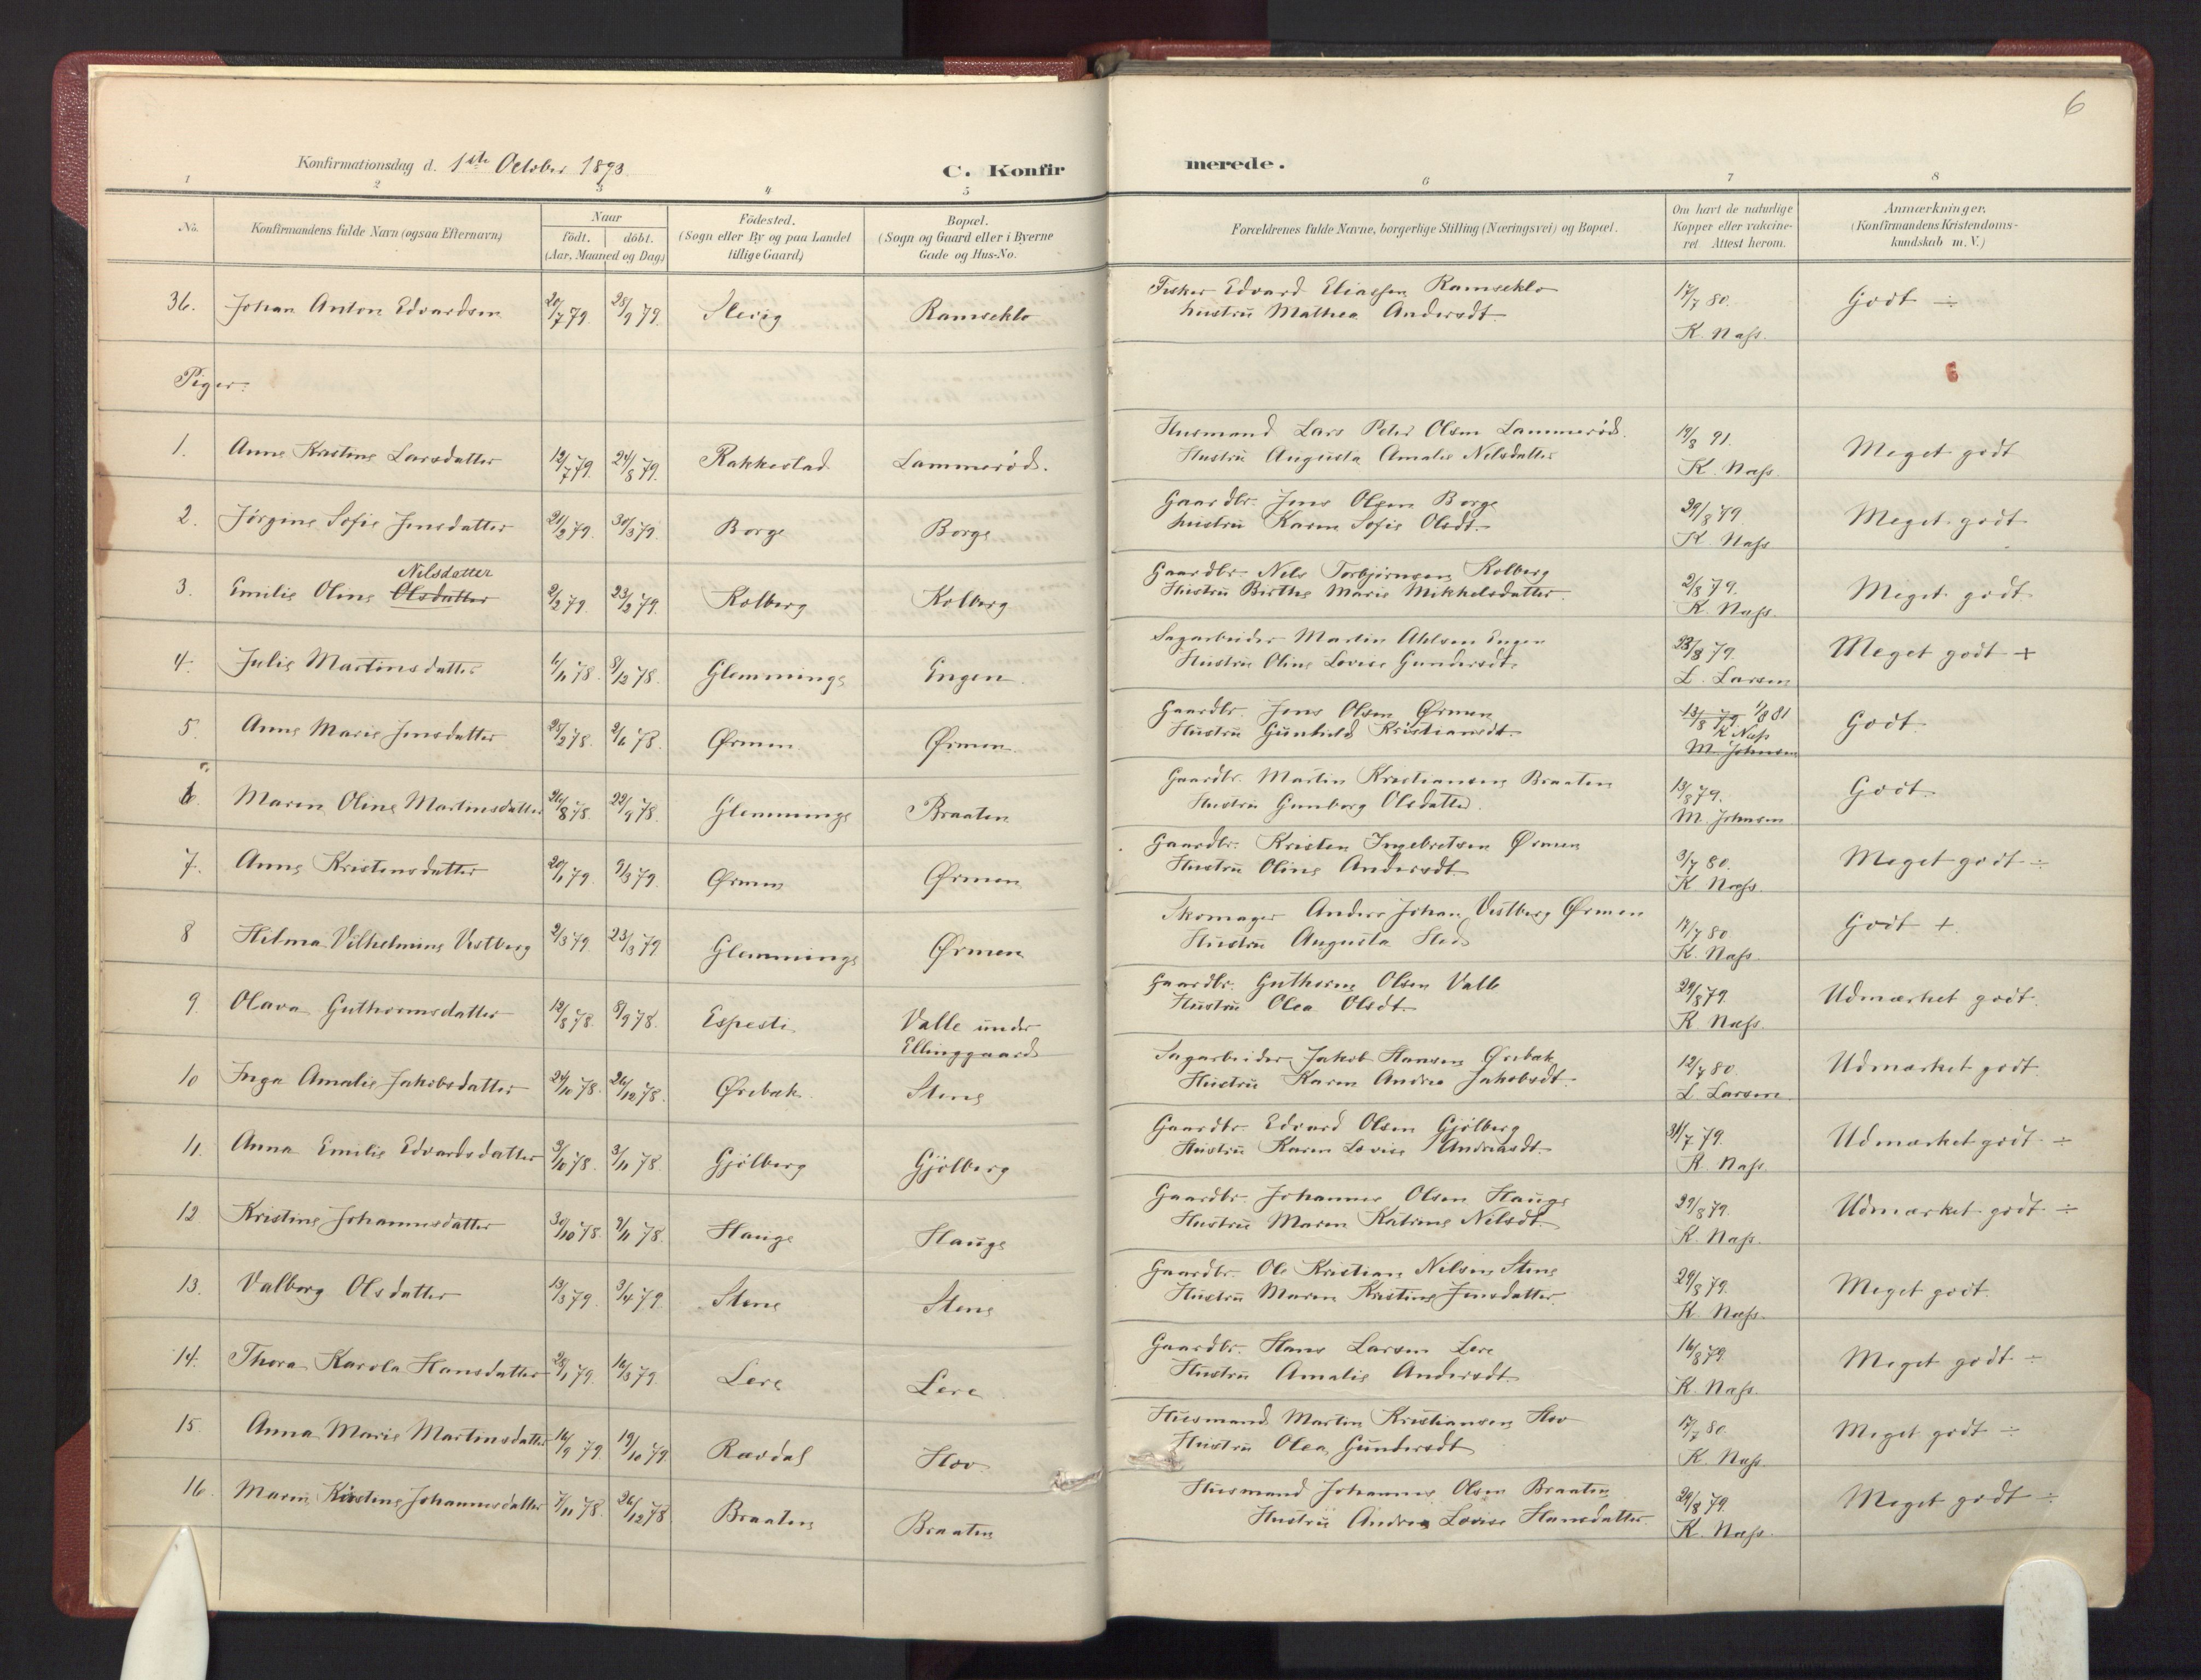 6
Konfirmationsdag d. 1ste October 1893.
C. Konfirmerede.
1 2 3 4 5 6 7 8
No. Konfirmandens fulde Navn (ogsaa Efternavn) Naar født. døbt. (Aar, Maaned og Dag) Fødested. (Sogn eller By og paa Landet tillige Gaard) Bopæl. (Sogn og Gaard eller i Byerne Gade og Hus-No. Forældrenes fulde Navne, borgerlige Stilling (Næringsvei) og Bopæl. Om havt de naturlige Kopper eller vakcineret Attest herom. Anmærkninger. (Konfirmandens Kristendomskundskab m. V.)
36. Johan Anton Edvardsen 20/7 79. 28/9 79. Slevig Ramseklo Fisker Edvard Eliassen Ramseklo 17/7 80. Godt ÷
hustru Mathea Andersdt. K. Næss.
Piger: 6
1. Anne Kristine Larsdatter 12/7 79. 24/8 79. Rakkestad Lammerød. Husmand Lars Peter Olsen Lammerød. 19/8 91. Meget godt
Hustru Augusta Amalie Nilsdatter K. Næss.
2. Jørgine Sofie Jensdatter 21/2 79. 30/3 79. Borge Borge Gaardbr. Jens Olsen Borge 29/8 79. Meget godt
hustru Karen Sofie Olsdt. K. Næss
3. Emilie Oline Olsdatter Nilsdatter 2/2 79. 23/2 79. Kolberg Kolberg Gaardbr. Nils Torbjørnsen Kolberg 2/8 79. Meget godt
Hustru Birthe Marie Mikkelsdatter. K. Næss.
4. Julie Martinsdatter 6/11 78. 8/12 78. Glemminge Engen. Sagarbeider Martin Ahlsen Engen 23/8 79. Meget godt +
Hustru Oline Lovise Gundersdt. L. Larsen
5. Anne Marie Jensdatter 25/2 78. 2/6 78. Ørmen Ørmen Gaardbr. Jens Olsen Ørmen 13/8 79 1/8 81 Godt
Hustru Gunhild Kristiansdt. K Næss
M. Johnsen
6. Maren Oline Martinsdatter 26/8 78. 22/9 78. Glemminge Braaten Gaardbr. Martin Kristiansen Braaten 13/8 79. Godt
Hustru Gunborg Olsdatter. M. Johnsen
7. Anne Kristensdatter 20/1 79. 9/3 79. Ørmen Ørmen Gaardbr. Kristen Ingebretsen Ørmen 3/7 80. Meget godt ÷
Hustru Oline Andersdt. K. Næss.
8 Hilma Vilhelmine Vestberg 2/3 79. 23/3 79 Glemminge Ørmen Skomager Anders Johan Vestberg Ørmen 17/7 80 Godt +
Hustru Augusta K. Næss.
9. Olava Guthormsdatter 12/8 78. 8/9 78. Espesti Valle under Gaardbr. Guthorm Olsen Valle 29/8 79. Udmærket godt.
Ellinggaard Hustru Olea Olsdt. K. Næss.
10 Inga Amalie Jakobsdatter 24/11 78. 26/12 78. Ørebæk. Stene Sagarbeider Jakob Hansen Ørebæk 12/7 80. Udmærket godt
Hustru Karen Andrea Jakobsdt. L. Larsen
11. Anna Emilie Edvardsdatter 3/10 78. 3/11 78. Gjølberg Gjølberg Gaardbr. Edvard Olsen Gjølberg 31/7 79. Udmærket godt ÷
Hustru Karen Lovise Andreasdt. K. Næss.
12 Kristine Johannesdatter 30/10 78. 9/11 78. Hauge Hauge Gaardbr. Johannes Olsen Hauge 29/8 79. Udmærket godt ÷
Hustru Maren Katrine Nilsdt. K. Næss.
13. Valborg Olsdatter 13/3 79. 3/4 79. Stene Stene Gaardbr. Ole Kristian Nilsen Stene 29/8 79. Meget godt.
Hustru Maren Kristine Jensdatter. K. Næss.
14. Thora Karola Hansdatter 28/1 79. 16/3 79. Lere Lere Gaardbr. Hans Larsen Lere 16/8 79 Meget godt ÷
Hustru Amalie Andersdt. K. Næss.
15. Anna Marie Martinsdatter 16/9 79. 19/10 79. Ravdal Hov Husmand Martin Kristiansen Hov 17/7 80. Meget godt ÷
Hustru Olea Gundersdt K. Næss.
16. Maren Kirstine Johannesdatter 7/11 78. 26/12 78 Braaten Braaten Husmand Johannes Olsen Braaten 29/8 79. Meget godt ÷
Hustru Andrea Lovise Hansdatter. K. Næss.